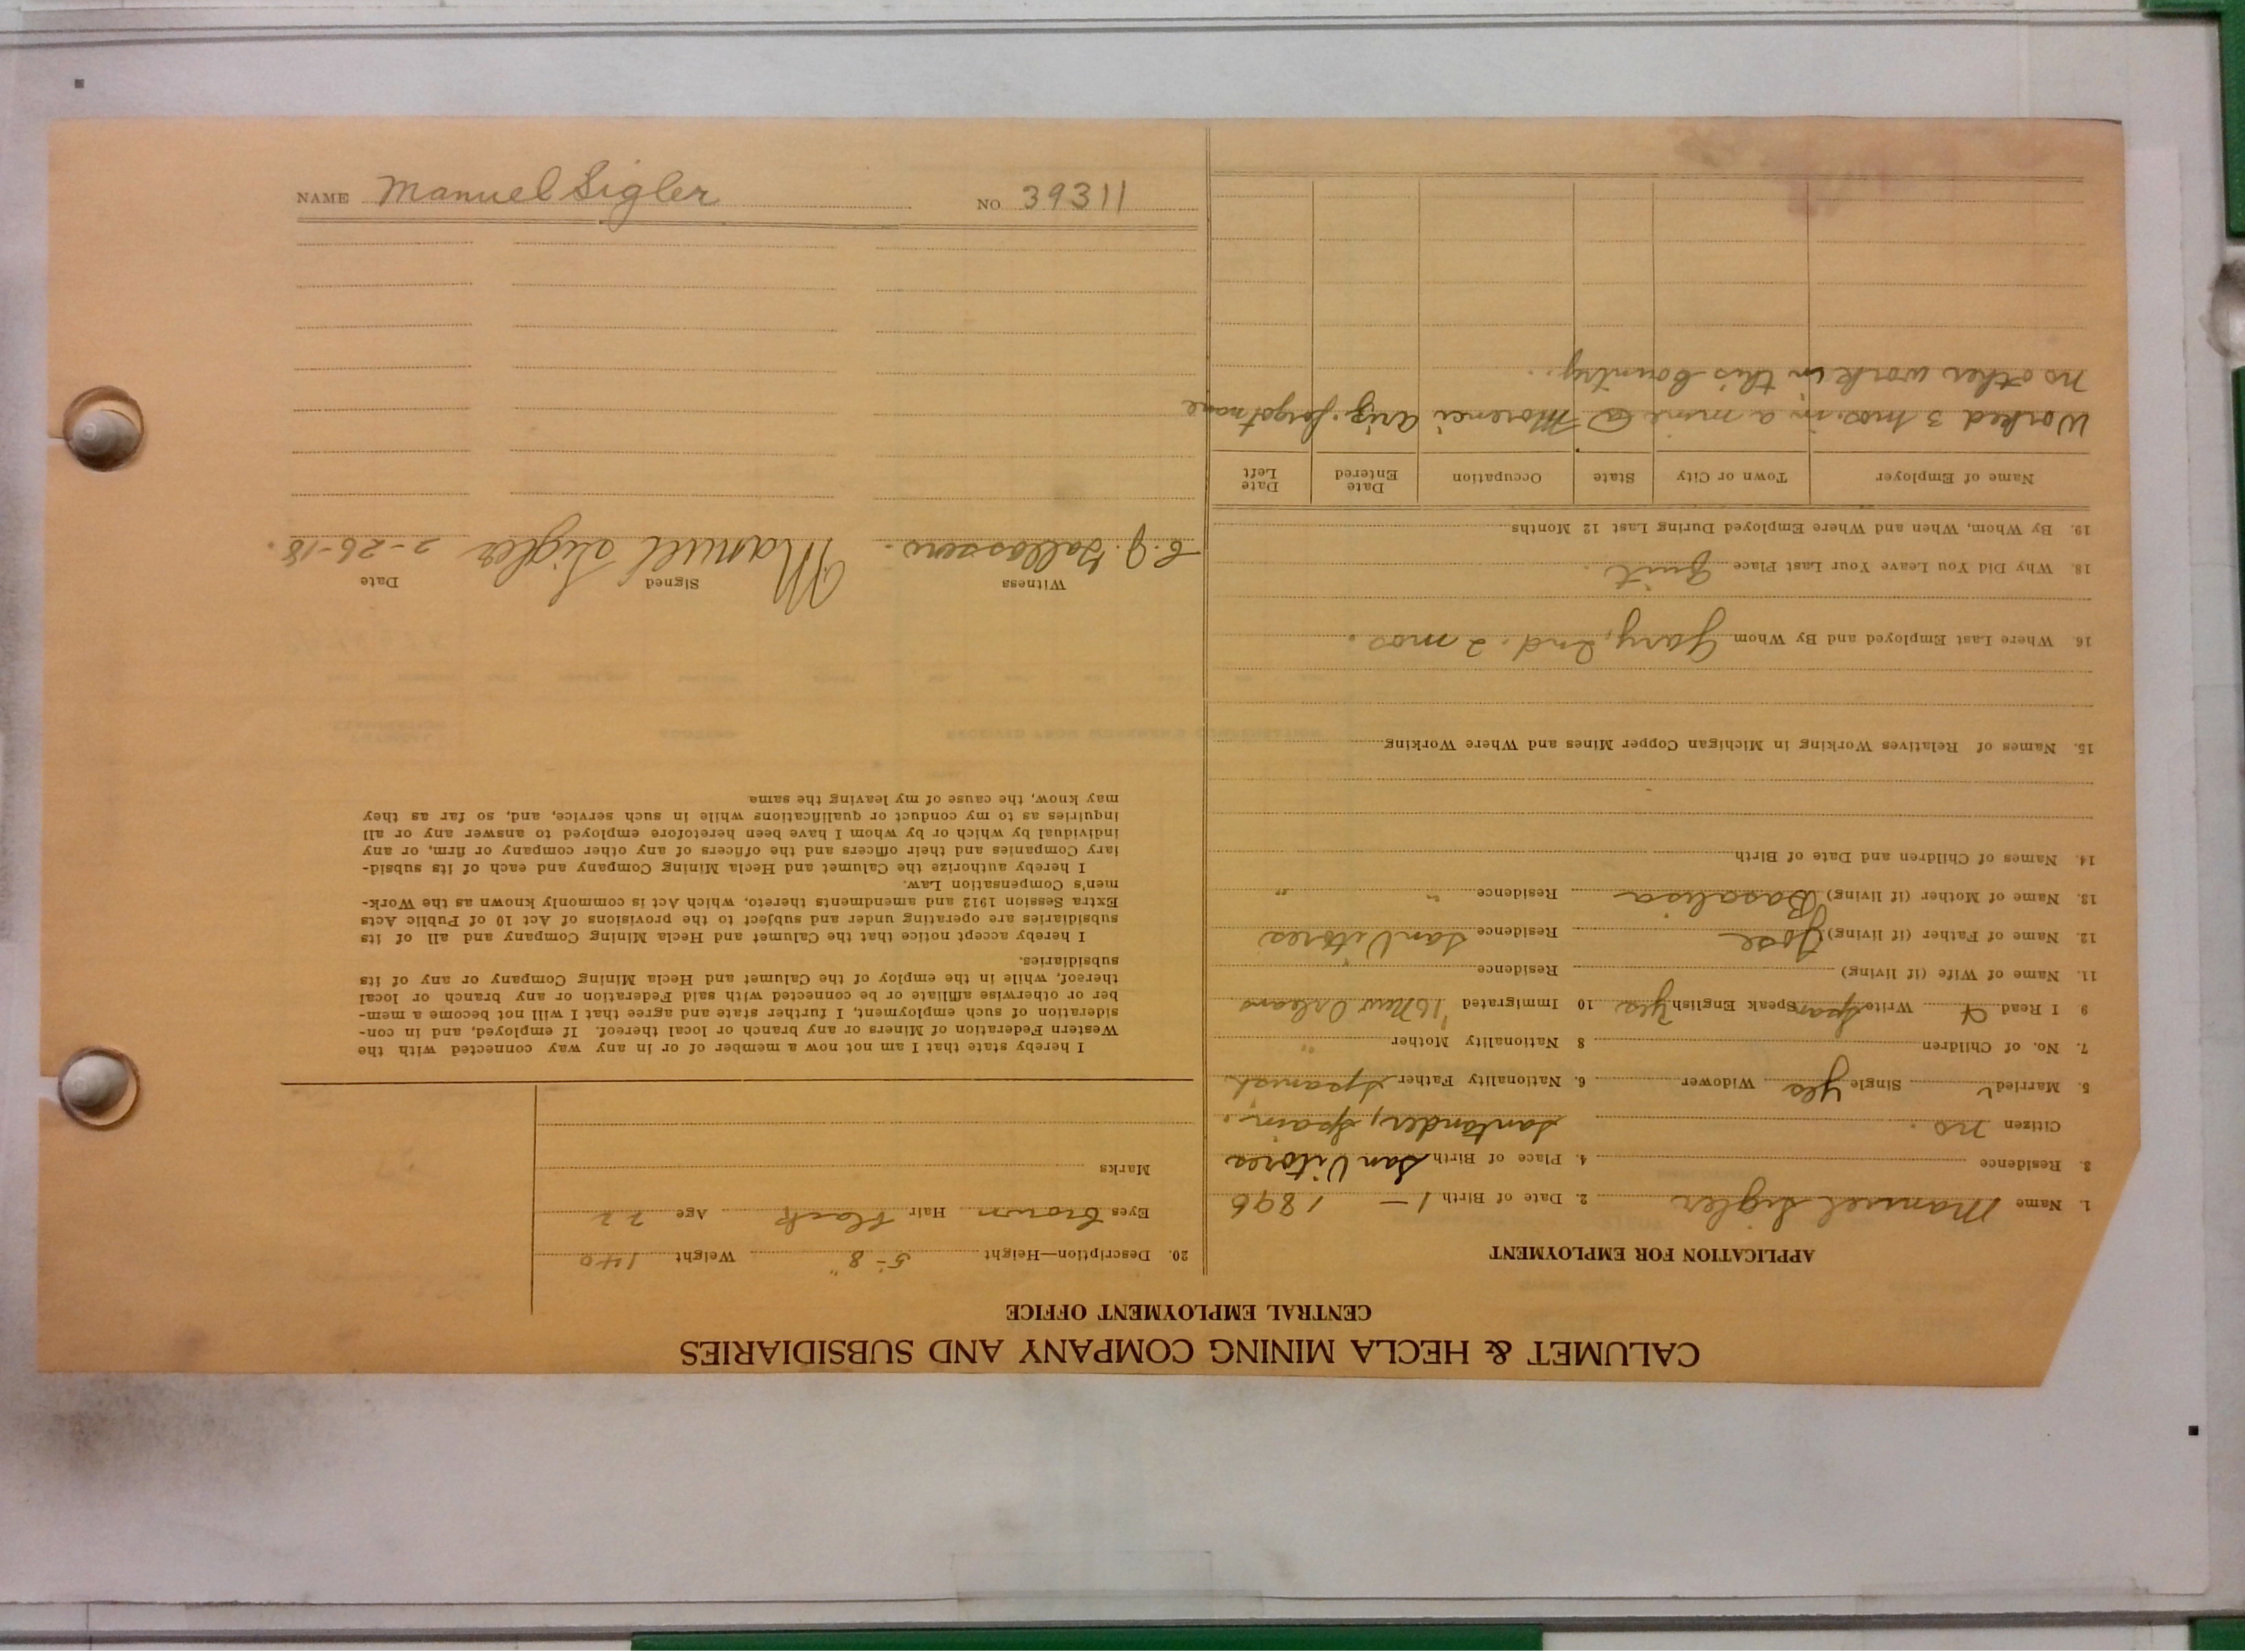 CALUMET & HECLA MINING COMPANY AND SUBSIDIARIES
CENTRAL EMPLOYMENT OFFICE
APPLICATION FOR EMPLOYMENT
1. Name Manuel Sigler 2. Date of Birth 1 - 1896
3. Residence 4. Place of Birth San Vitores
Citizen no. Santander, Spain.
5. Married Single yes Widower 6. Nationality Father Spanish
7. No. of Children 8 Nationality Mother "
9 I Read Write Span Speak English yes 10 Immigrated '16 New Orleans
11. Name of Wife (if living) Residence
12. Name of Father (if living) Jose Residence San Vitores
13. Name of Mother (if living) Basalisa Residence " "
14. Names of Children and Date of Birth
15. Names of Relatives Working in Michigan Copper Mines and Where Working
16. Where Last Employed and By Whom Gary, Ind. 2 mos.
18. Why Did You Leave Your Last Place Quit.
19. By Whom, When and Where Employed During Last 12 Months
Name of Employer Town or City State Occupation Date Entered Date Left
Worked 3 mos. in a mine @ Morenci Ariz. forgot name
no other work in this Country.
20. Description—Height 5-8" Weight 140
Eyes brown Hair black Age 22
Marks
I hereby state that I am not now a member of or in any way connected with the
Western Federation of Miners or any branch or local thereof. If employed, and in con-
sideration of such employment, I further state and agree that I will not become a mem-
ber or otherwise affiliate or be connected with said Federation or any branch or local
thereof, while in the employ of the Calumet and Hecla Mining Company or any of its
subsidiaries.
I hereby accept notice that the Calumet and Hecla Mining Company and all of its
subsidiaries are operating under and subject to the provisions of Act 10 of Public Acts
Extra Session 1912 and amendments thereto, which Act is commonly known as the Work-
men's Compensation Law.
I hereby authorize the Calumet and Hecla Mining Company and each of its subsid-
iary Companies and their officers and the officers of any other company or firm, or any
individual by which or by whom I have been heretofore employed to answer any or all
inquiries as to my conduct or qualifications while in such service, and, so far as they
may know, the cause of my leaving the same
Witness Signed Date
E. J. Manuel Sigler 2-26-18.
NAME Manuel Sigler NO 39311